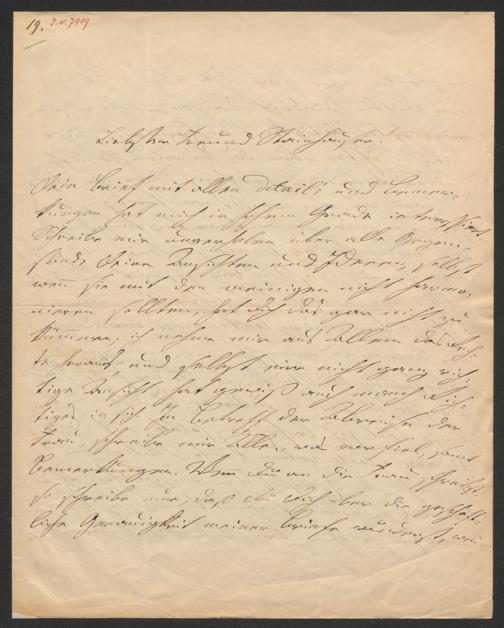 19. I.N. 7919
Liebster Freund Steinhauser!
Dein Brief mit allen Detail's und Bemer-
kungen hat mich in hohem Grade interessirt
Schreibe mir ungescheut über alle Gegen-
stände Deine Ansichten und Ideen, selbst
wenn sie mit den meinigen nicht harmo-
nieren sollten, hat Dich das gar nicht zu
kümmern, ich nehme mir aus Allem das Bes-
te heraus, und selbst eine nicht ganz rich-
tige Ansicht hat gewiß auch manch Rich-
tiges in sich. In Betreff der Abreise der
Frau, schreibe mir Alles, was vorfiel, samt
Bemerkungen. Wenn Du an die Frau schreibst
so schreibe nur, daß Du Dich über die geschäft-
liche Genauigkeit meiner Briefe wunderst, wie